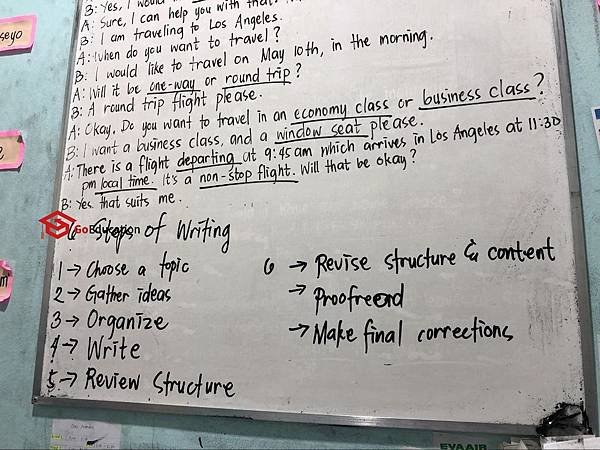 B: Yes, I would
A: Sure, I can help you with that.
B: I am traveling to Los Angeles.
A: When do you want to travel?
B: I would like to travel on May 10th, in the morning.
A: Will it be one-way or round trip?
B: A round trip flight please.
A: Okay. Do you want to travel in an economy class or business class?
B: I want a business class, and a window seat please.
A: There is a flight departing at 9:45 am which arrives in Los Angeles at 11:30
pm local time. It's a non-stop flight. Will that be okay?
B: Yes that suits me.
GoEducation
6 Steps of Writing
1 → Choose a topic
2 → Gather ideas
3 → Organize
4 → Write
5 → Review Structure
6 → Revise structure & content
→ Proofread
→ Make final corrections
seyo
EVA AIR